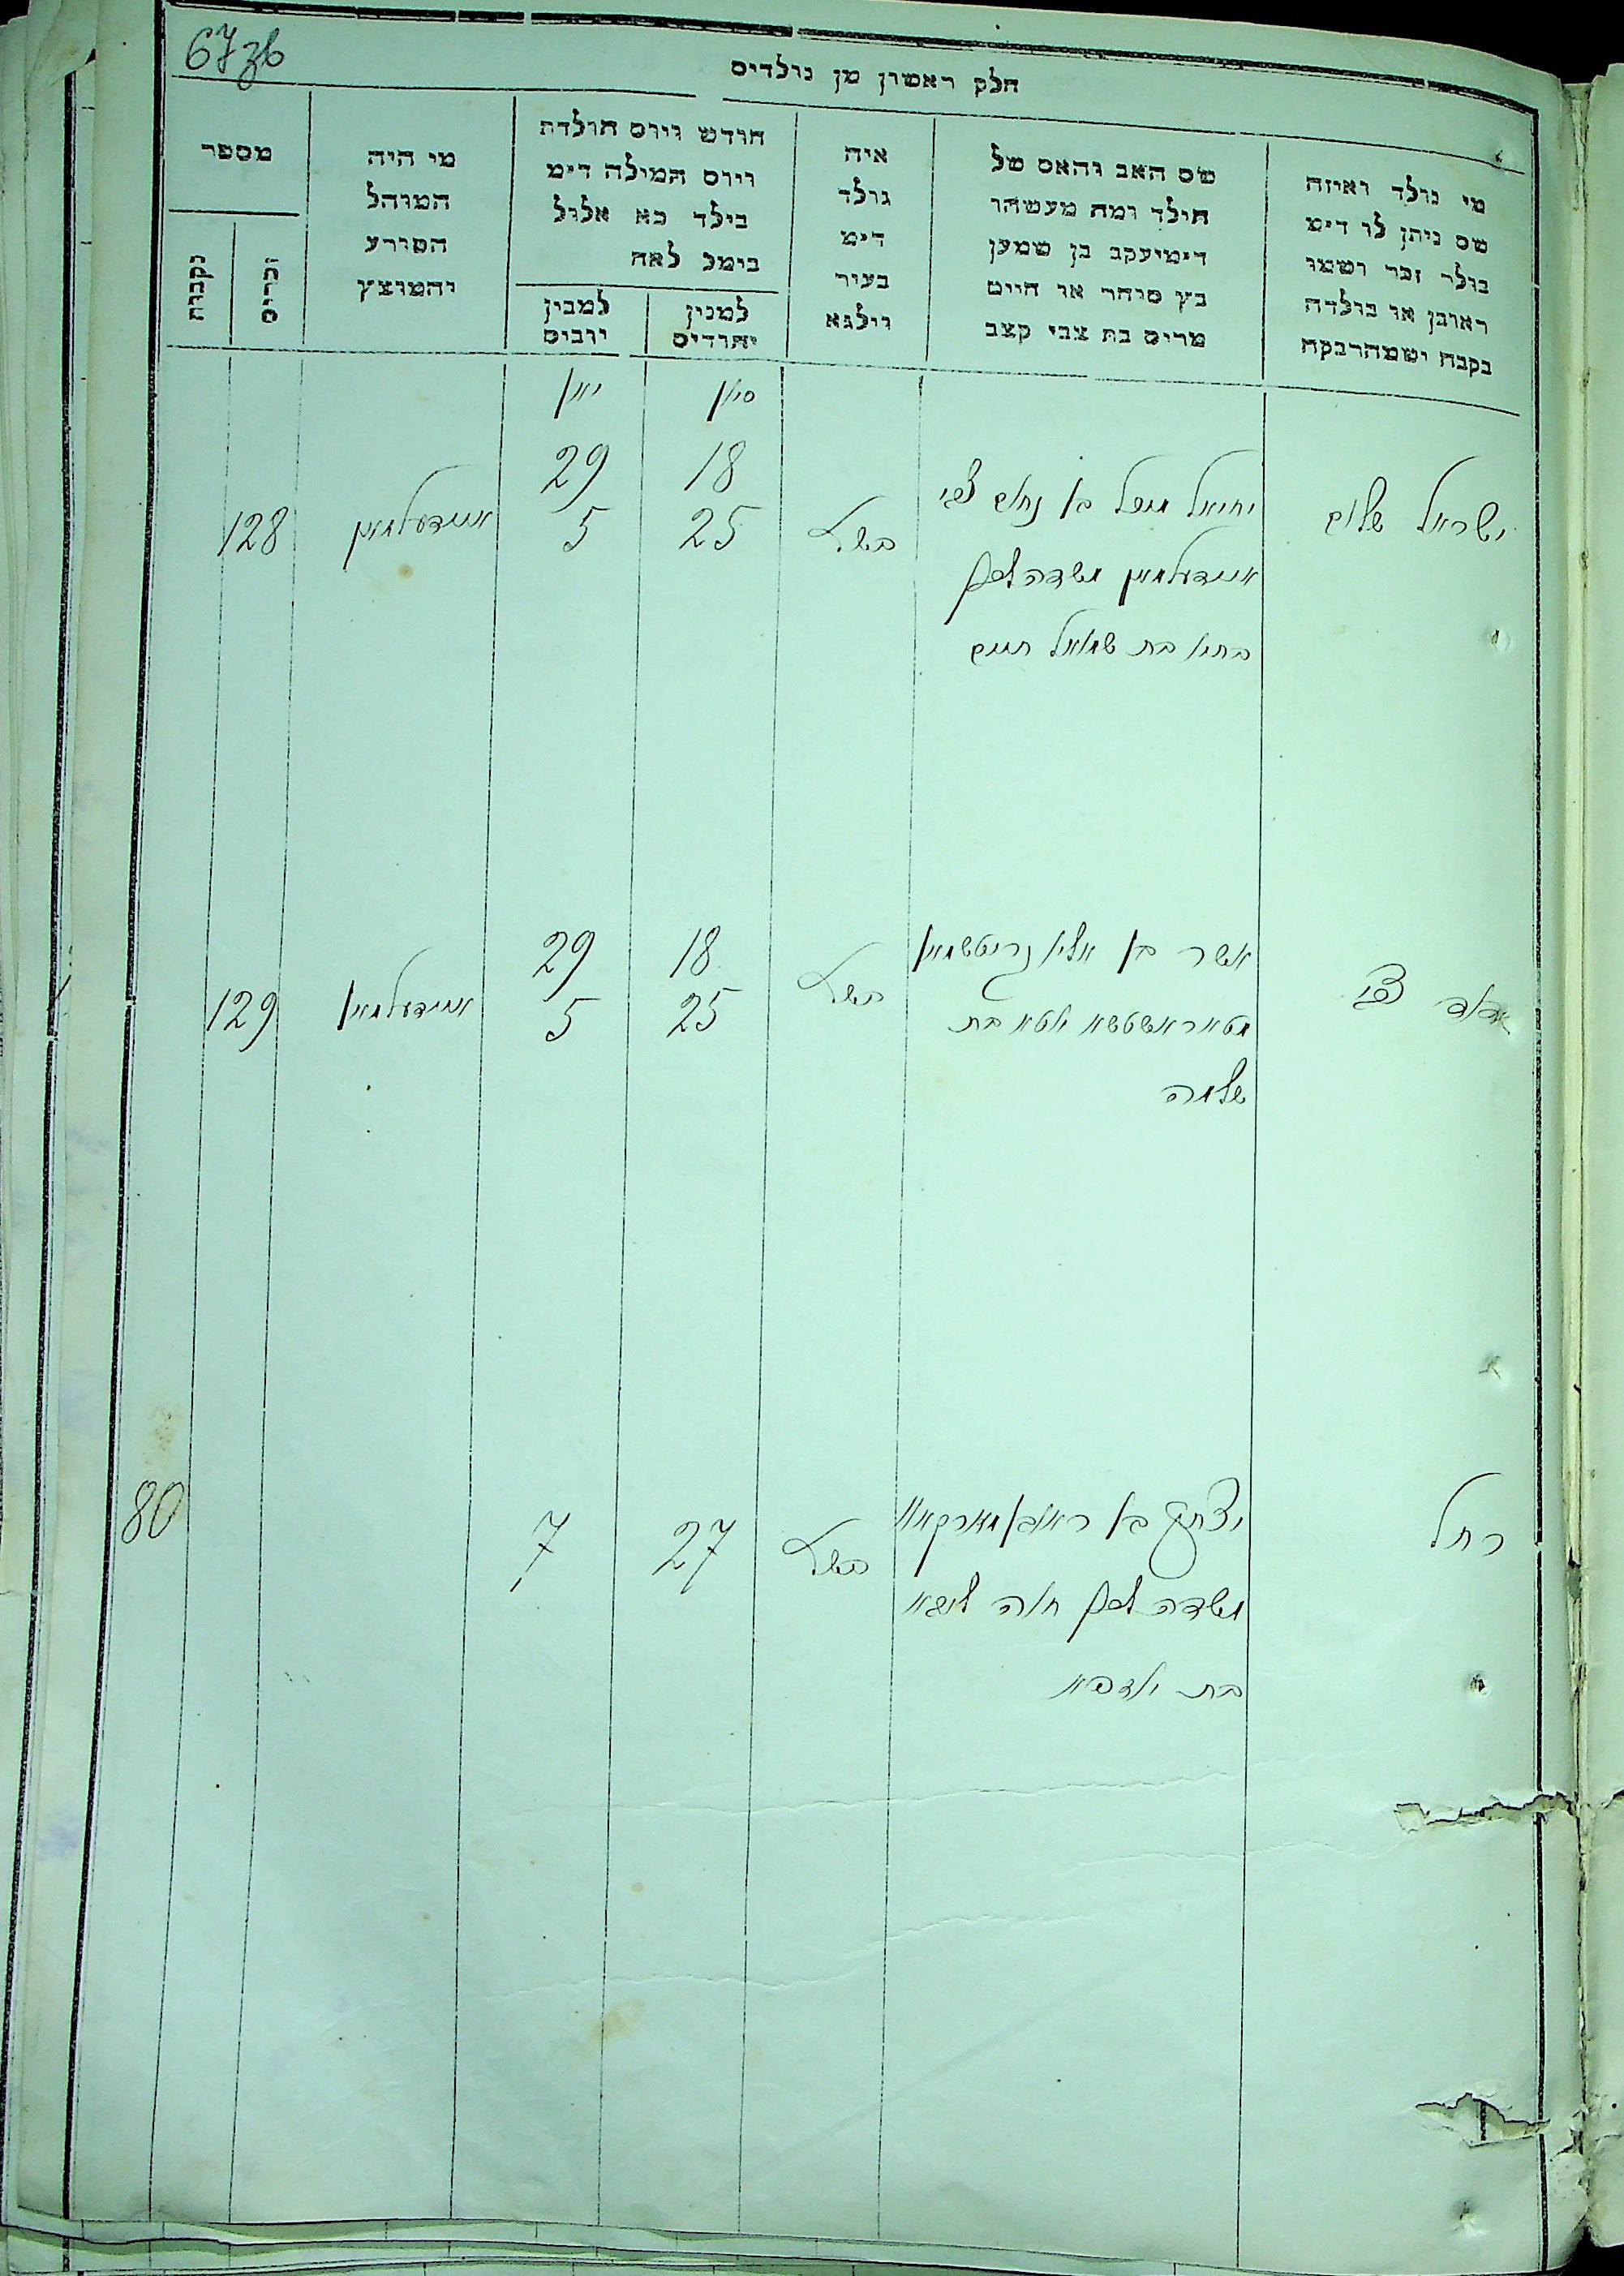 67 зв
חלק ראשון מן נולדים
מי נולד ואיזה
שם ניתן לו דימ
בולר זכר ושמו
ראובן או בולדה
בקבה ישמהרבקה
שם האב והאם של
הילד ומה מעשהו
דימיעקב בן שמען
בץ סוחר או חייט
מרים בת צבי קצב
איה
גולד
דימ
בעיר
וילגא
חודש ויום הולדת
ויום המילה דימ
בילד כא אלול
בימל לאח
למנין
יהודים
למבין
יובים
מי היה
המוהל
הפורע
והמוצץ
מספר
זכרים
נקבות
סיון
יוני
ישראל שלום
יחיאל מיכל בן נחום צבי
איידעלמאן
בתיה בת שמואל חיים
18
25
29
5
איידעלמאן
128
צבי
אשר בן אליה
בת
שלמה
18
25
29
5
איידעלמאן
129
רחל
יצחק בן ראובן
חוה ליבא
בת
27
7
80